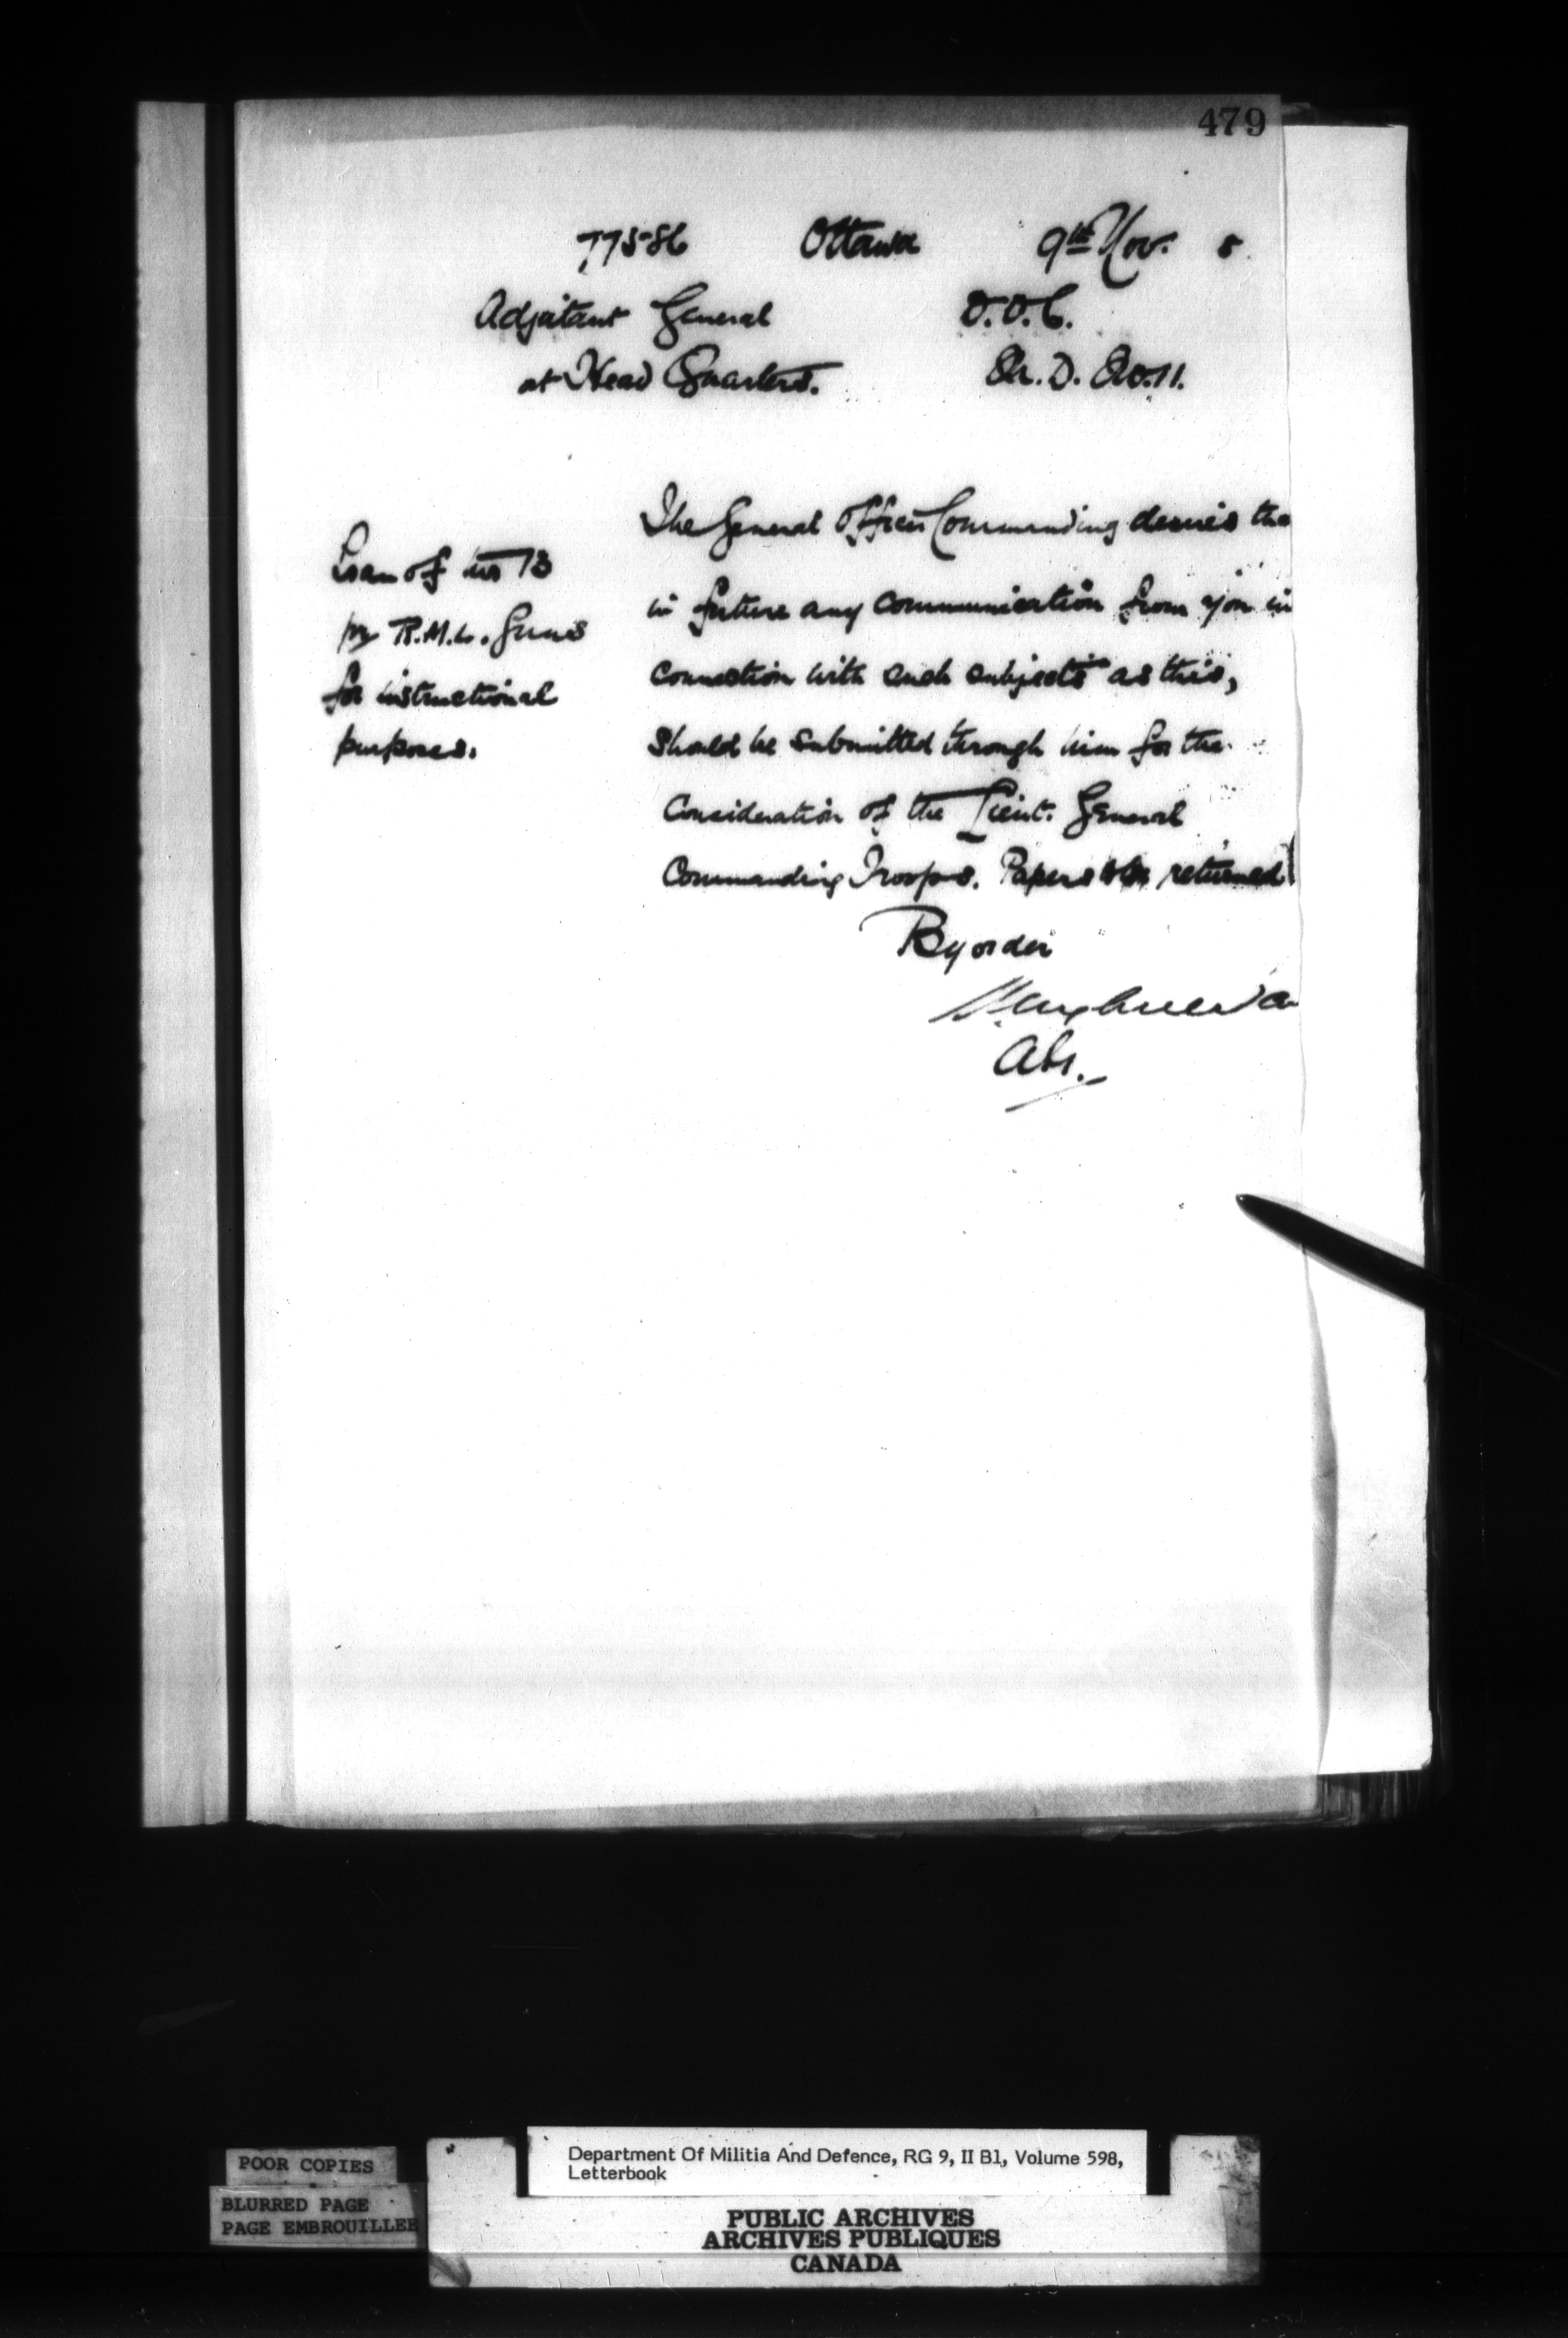 479
77586 Ottawa 9th Nov. 8
Adjutant General
at Head Quarters.
D.O.C.
M.D. No. 11.
Loan of two 13
pr R.M.L. Guns
for instructional
purposes.
The General Officer Commanding desires tha
in future any communication from you in
connection with such subjects as this,
should be submitted through him for the
Consideration of the Lieut. General
Commanding Troops. Papers returned
By order
POOR COPIES
BLURRED PAGE
PAGE EMBROUILLEE
Department Of Militia And Defence, RG 9, II B1, Volume 598,
Letterbook
PUBLIC ARCHIVES
ARCHIVES PUBLIQUES
CANADA